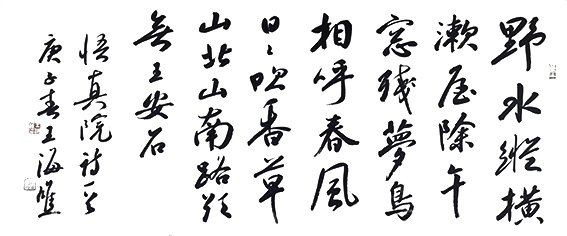 野水縱橫
漱屋除午
窓殘夢鳥
相呼春風
日〻吹香草
山北山南路欲
無王安石
悟真院詩一首
庚子春王海